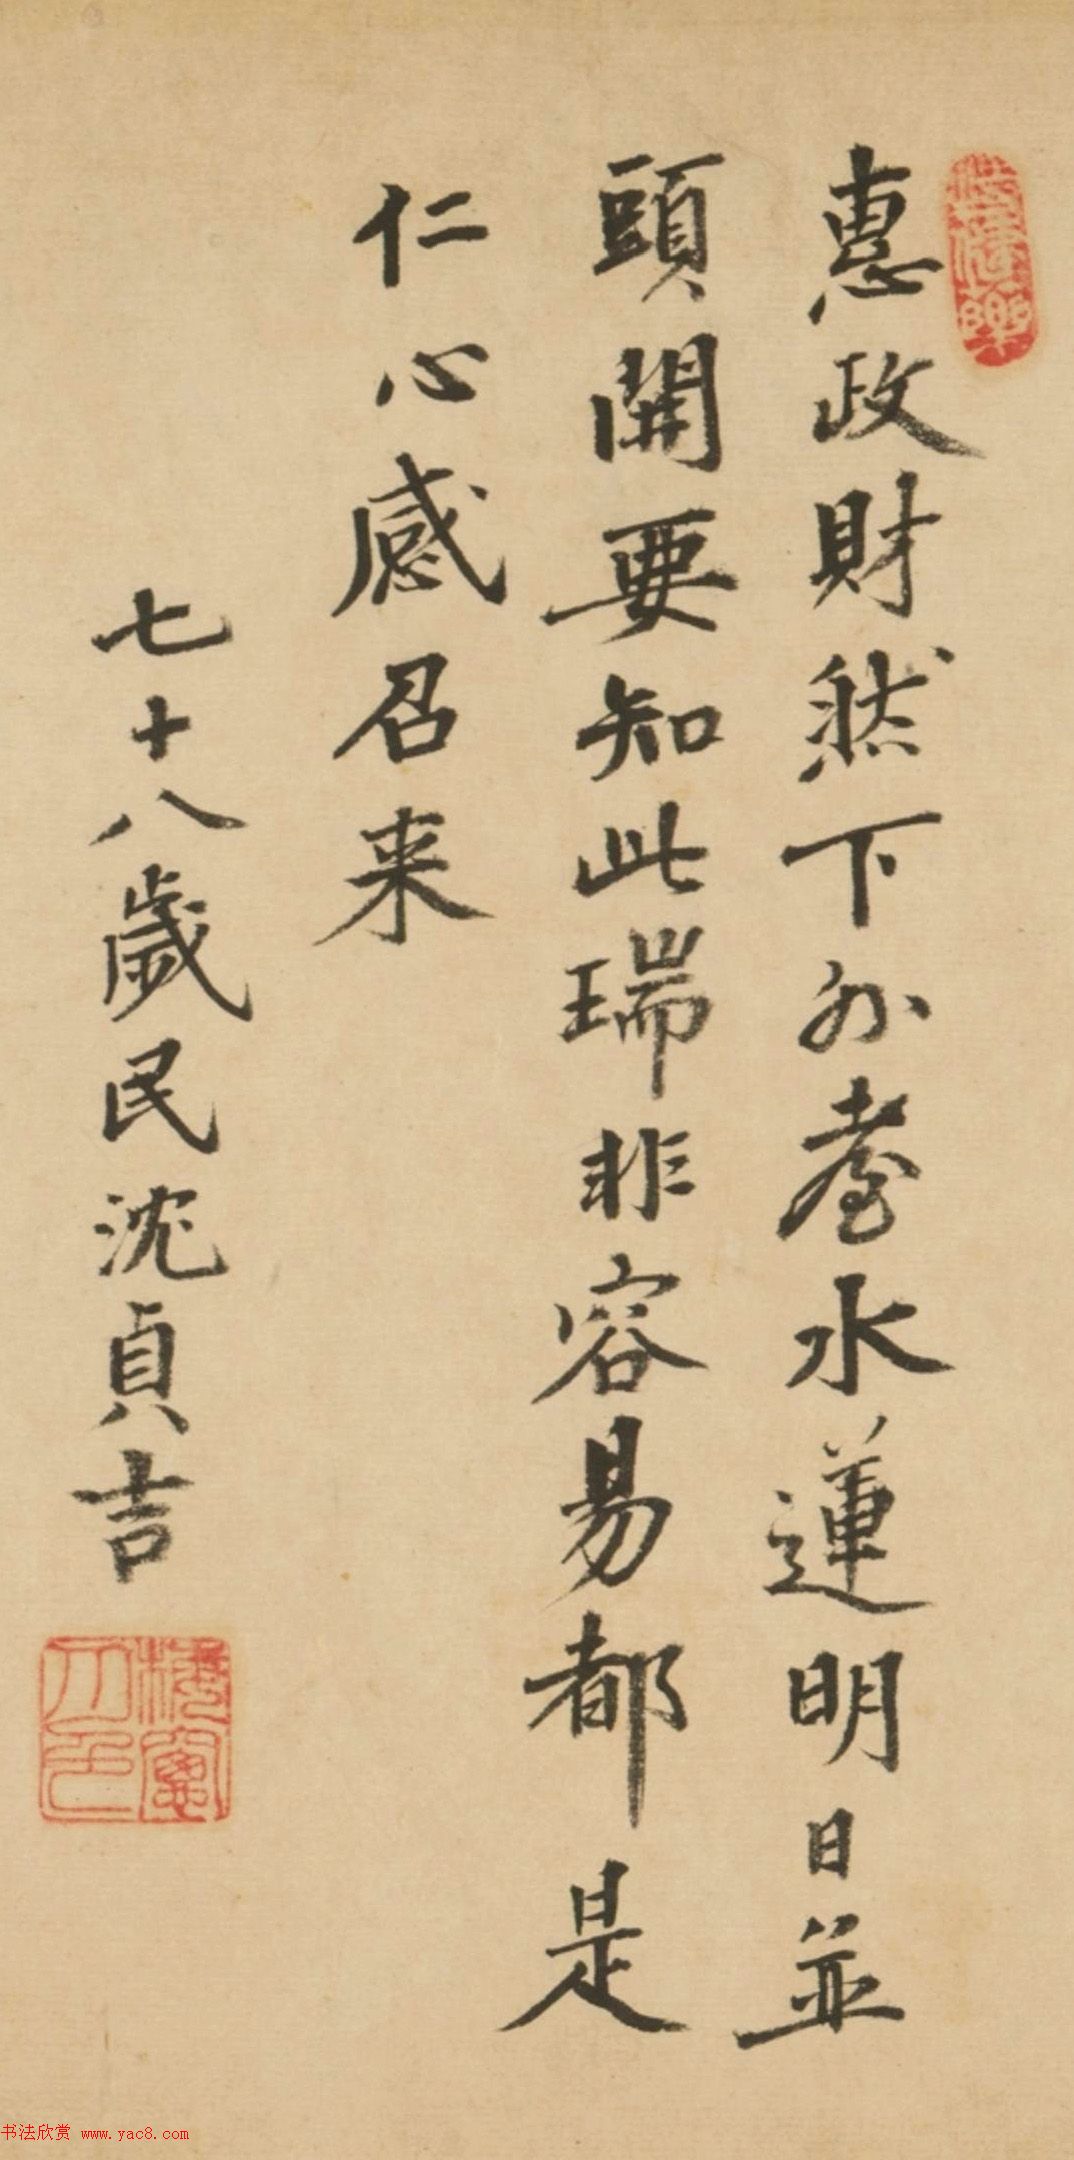 惠政財然下外臺水蓮明日並
頭開要知此瑞非容易都是
仁心感召来
七十八歲民沈貞吉
书法欣赏 www.yac8.com